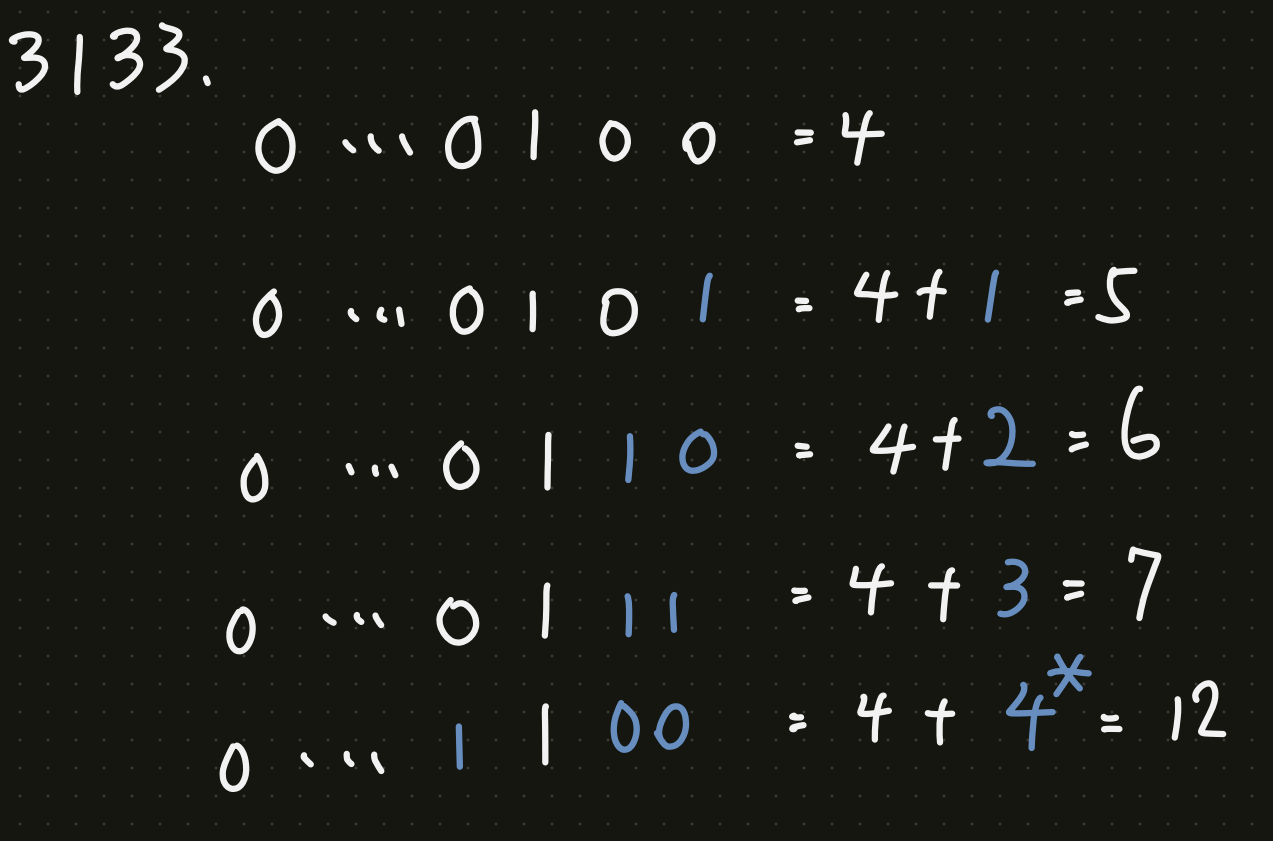 3133.
0 ... 0 1 0 0 = 4
0 ... 0 1 0 1 = 4 + 1 = 5
0 ... 0 1 1 0 = 4 + 2 = 6
0 ... 0 1 1 1 = 4 + 3 = 7
0 ... 1 1 0 0 = 4 + 4* = 12